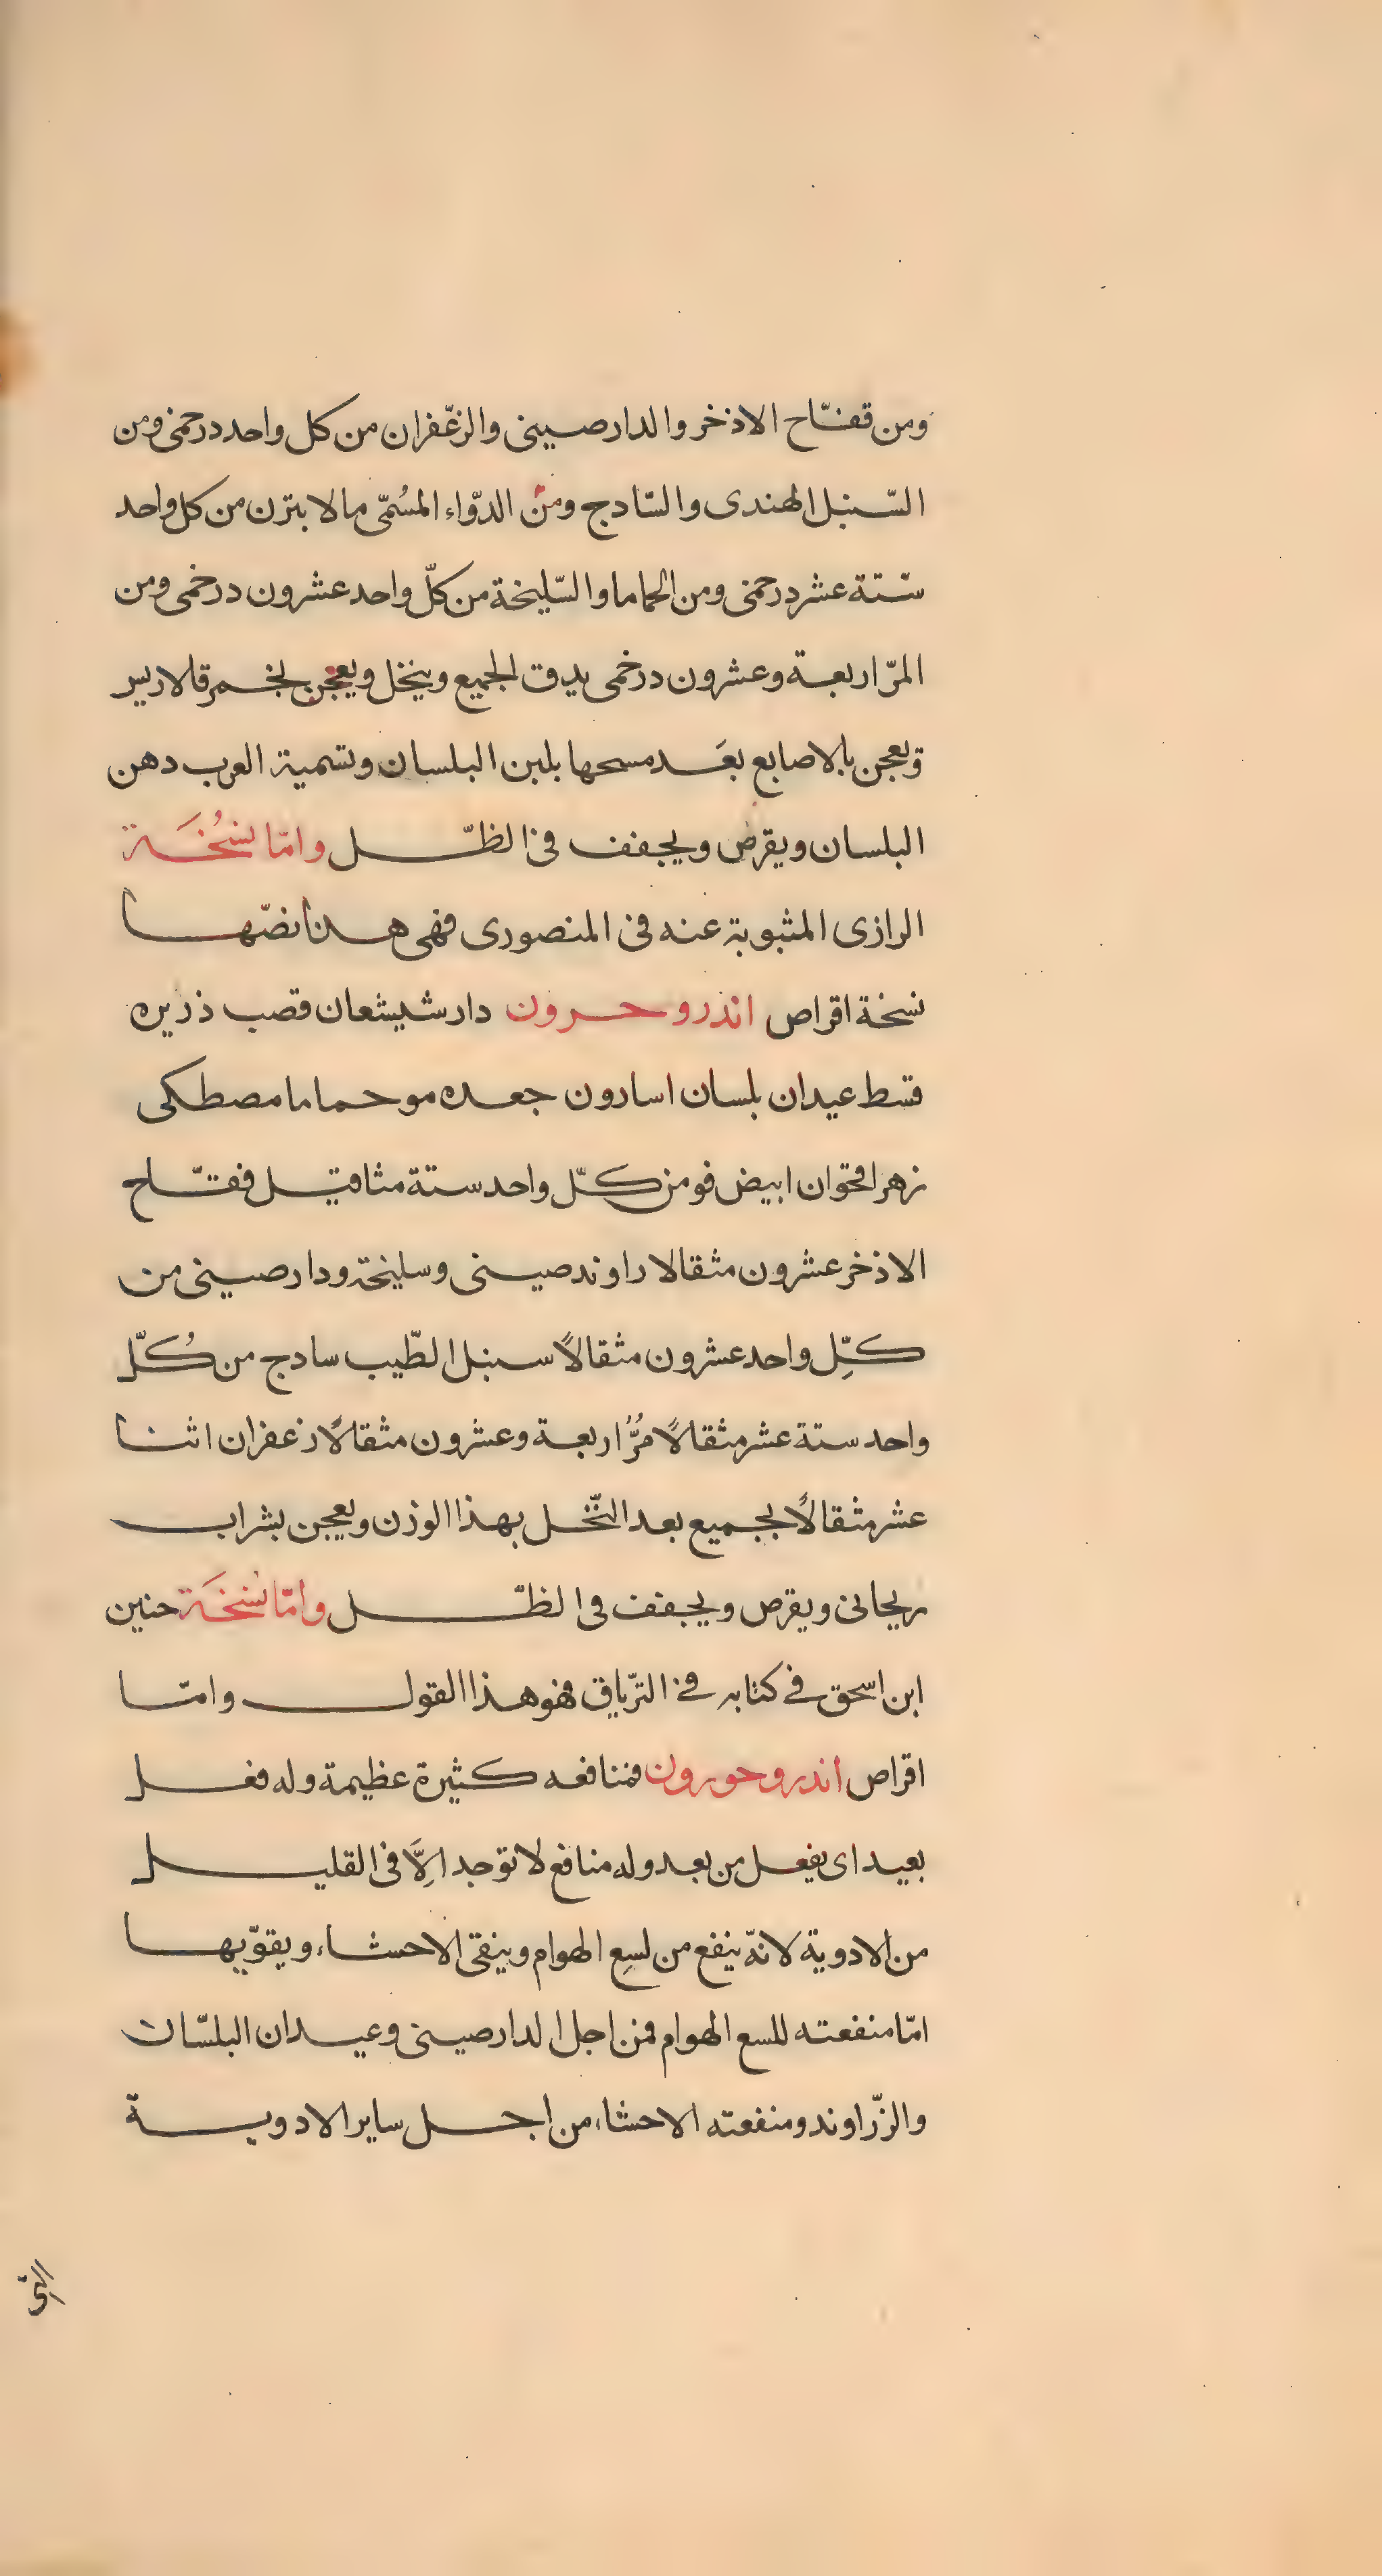 ومن قفتاح الاذخر والدارصينى والزعّفران من كل واحد درخمى ومن
السّنبل الهندى والسّادج ومن الدوّاء المسُمّى مالابترن من كل واحد
ستّة عشر درخمى ومن الحماما والسّليخة من كلّ واحد عشرون درخمى ومن
المرّ اربعة وعشرون درخمى يدق الجميع وينخل ويعجن بخمر قلاريس
ويعجن بالاصابع بعَد مسحها بلبن البلسان وتسمية العرب دهن
البلسان ويقرص ويجفف فى الظّل وامّا نسُخَة
الرازى المثبوبة عنه فى المنصورى فهى هذا نصّها
نسخة اقراص اندروحرون دارشيشعان قصب ذريره
قسط عيدان بلسان اسارون جعده مو حماما مصطكى
زهر اقحوان ابيض فو من كلّ واحد ستة مثاقيل فقّاح
الاذخر عشرون مثقالا راوند صينى وسليخة ودارصينى من
كلِّ واحد عشرون مثقالاً سنبل الطّيب سادج من كُلّ
واحد ستة عشر مثقالاً مُرُّ اربعة وعشرون مثقالاً زعفران اثنا
عشر مثقالاً يجميع بعد النّخل بهذا الوزن ويعجن بشراب
ريحانى ويقرص ويجفف فى الظّل وامّا نسُخَة حنين
ابن اسحق فى كتابه فى الترّياق فهو هذا القول وامّا
اقراص اندروحورون فمنافعه كثيرة عظيمة وله فعل
بعيد اى يفعل من بعد وله منافع لا توجد الِاَّ فى القليل
من الادوية لانهّ ينفع من لسعِ الهوام وينقى الاحشاء ويقوّيها
امّا منفعته للسع الهوام فمن اجل الدارصينى وعيدان البلسّان
والزّراوند ومنفعته الاحشاء من اجل ساير الادوية
التى